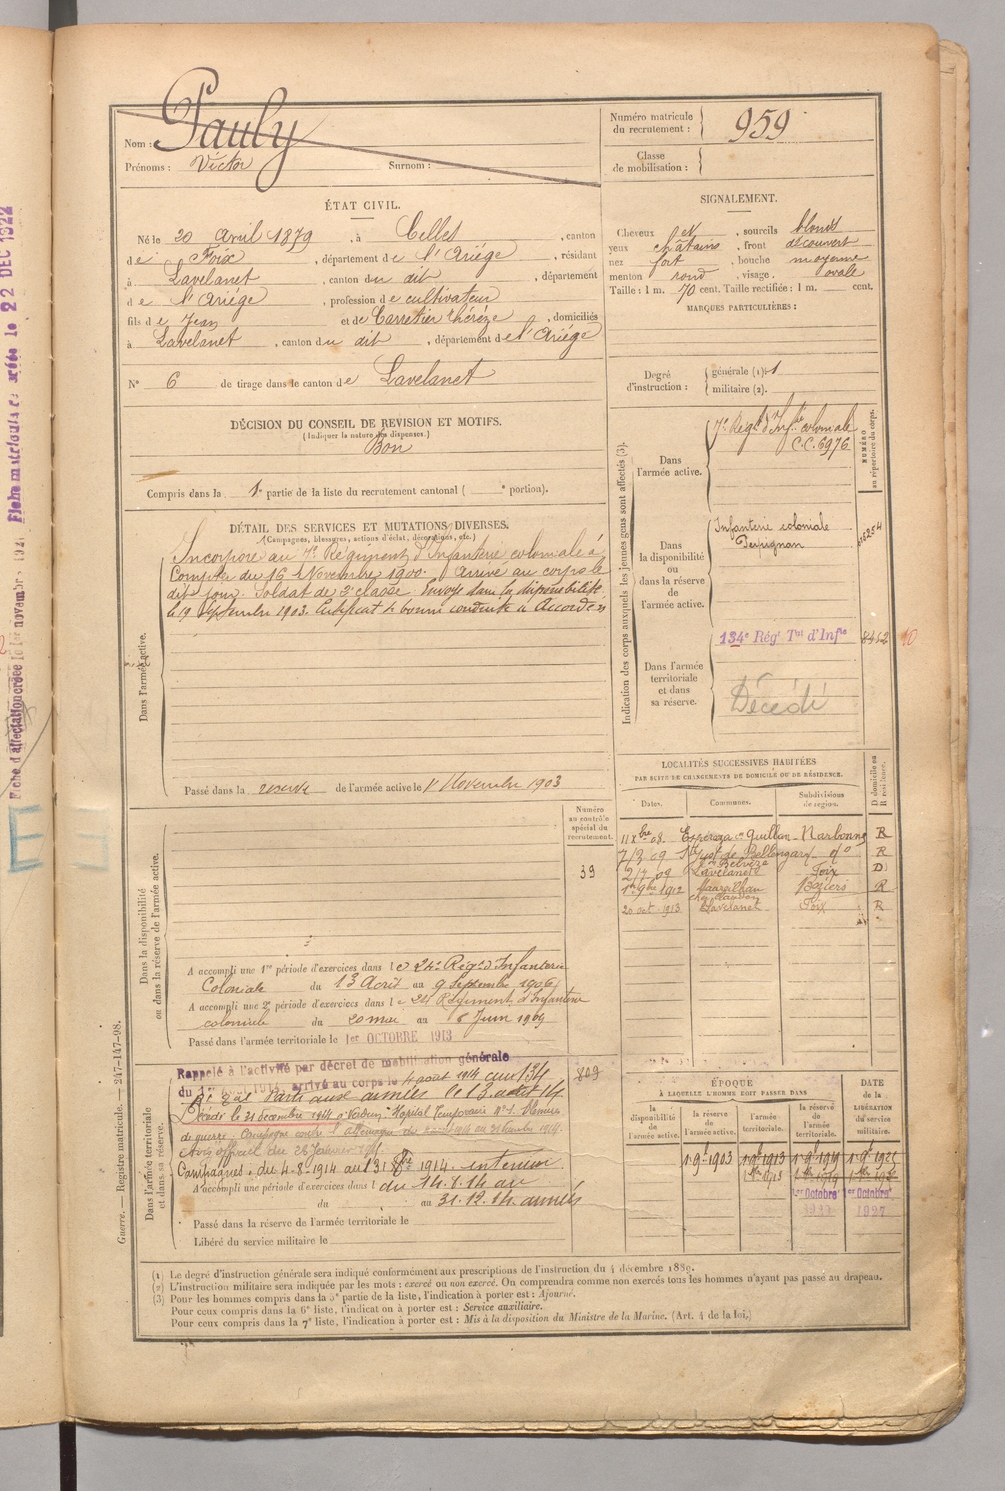 Nom : Pauly
Prénoms : Victor Surnom :
Numéro matricule du recrutement : 959
Classe de mobilisation :
ÉTAT CIVIL.
Né le 20 Avril 1879, à Celles, canton
de Foix, département de l'Ariège, résidant
à Lavelanet, canton du dit, département
de l'Ariège, profession de cultivateur
fils de Jean et de Carretier Thérèze, domiciliés
à Lavelanet, canton du dit, département de l'Ariège
N° 6 de tirage dans le canton de Lavelanet
SIGNALEMENT.
Cheveux et, sourcils blonds
yeux châtains, front découvert
nez fort, bouche moyenne
menton rond, visage ovale
Taille : 1 m. 70 cent. Taille rectifiée : 1 m. cent.
MARQUES PARTICULIÈRES :
Degré d'instruction : générale (1) 1
militaire (2).
DÉCISION DU CONSEIL DE REVISION ET MOTIFS.
(Indiquer la nature des dispenses.)
Bon
Compris dans la 1e partie de la liste du recrutement cantonal ( e portion).
DÉTAIL DES SERVICES ET MUTATIONS DIVERSES.
(Campagnes, blessures, actions d'éclat, décorations, etc.)
Dans l'armée active.
Incorporé au 7e Régiment d'Infanterie coloniale à
Compter du 16 Novembre 1900. Arrivé au corps le
dit jour. Soldat de 2e classe. Envoyé dans la disponibilité
le 19 Septembre 1903. Certificat de bonne conduite "Accordé"
Passé dans la réserve de l'armée active le 1er Novembre 1903
Indication des corps auxquels les jeunes gens sont affectés (3).
NUMÉRO au répertoire du corps.
Dans l'armée active.
7e Régt d'Inf.rie coloniale
C.C. 6976
Dans la disponibilité ou dans la réserve de l'armée active.
Infanterie coloniale
Perpignan
134e Régt Tal d'Infie 8452
Dans l'armée territoriale et dans sa réserve.
Décédé
LOCALITÉS SUCCESSIVES HABITÉES
PAR SUITE DE CHANGEMENTS DE DOMICILE OU DE RÉSIDENCE.
Dates. Communes. Subdivisions de région. D domicile ou R résidence.
11 Xbre 08. Espéraza cn Quillan Narbonne R
7/2 09 St Just de Bellengard do R
Cn Belvèze
2/7 09 Lavelanet Foix D
1er 9bre 1912 Maureilhan Béziers R
20 oct. 1913 Lavelanet Foix R
Dans la disponibilité ou dans la réserve de l'armée active.
Numéro au contrôle spécial du recrutement.
39
A accompli une 1re période d'exercices dans le 24e Régt d'Infanterie
Coloniale du 13 Août au 9 Septembre 1906
A accompli une 2e période d'exercices dans le 24e Régiment d'Infanterie
coloniale du 20 mai au 6 Juin 1909
Passé dans l'armée territoriale le 1er OCTOBRE 1913
Dans l'armée territoriale et dans sa réserve.
Rappelé à l'activité par décret de mobilisation générale
du 1er AOUT 1914, arrivé au corps le 4 août 1914 aux 134
Rt Tal Parti aux armées le 13 août 14
809
Décédé le 31 décembre 1914 à Verdun Hopital Temporaire
Campagnes : du 4-8-1914 au 13 1914. intérieur
A accompli une période d'exercices dans l du 14.8.14 au
du au 31.12.14 armées
Passé dans la réserve de l'armée territoriale le
Libéré du service militaire le
ÉPOQUE
À LAQUELLE L'HOMME DOIT PASSER DANS
DATE de la LIBÉRATION du service militaire.
la disponibilité de l'armée active.
la réserve de l'armée active.
l'armée territoriale.
la réserve de l'armée territoriale.
1-9e 1903 1-9e 1913 1-9e 1919
1er Octobre 1er Octobre
(1) Le degré d'instruction générale sera indiqué conformément aux prescriptions de l'instruction du 4 décembre 1889.
(2) L'instruction militaire sera indiquée par les mots : exercé ou non exercé. On comprendra comme non exercés tous les hommes n'ayant pas passé au drapeau.
(3) Pour les hommes compris dans la 5e partie de la liste, l'indication à porter est : Ajourné.
Pour ceux compris dans la 6e liste, l'indication à porter est : Service auxiliaire.
Pour ceux compris dans la 7e liste, l'indication à porter est : Mis à la disposition du Ministre de la Marine. (Art. 4 de la loi.)
Guerre. — Registre matricule. — 247-147-98.
22 DEC 1922